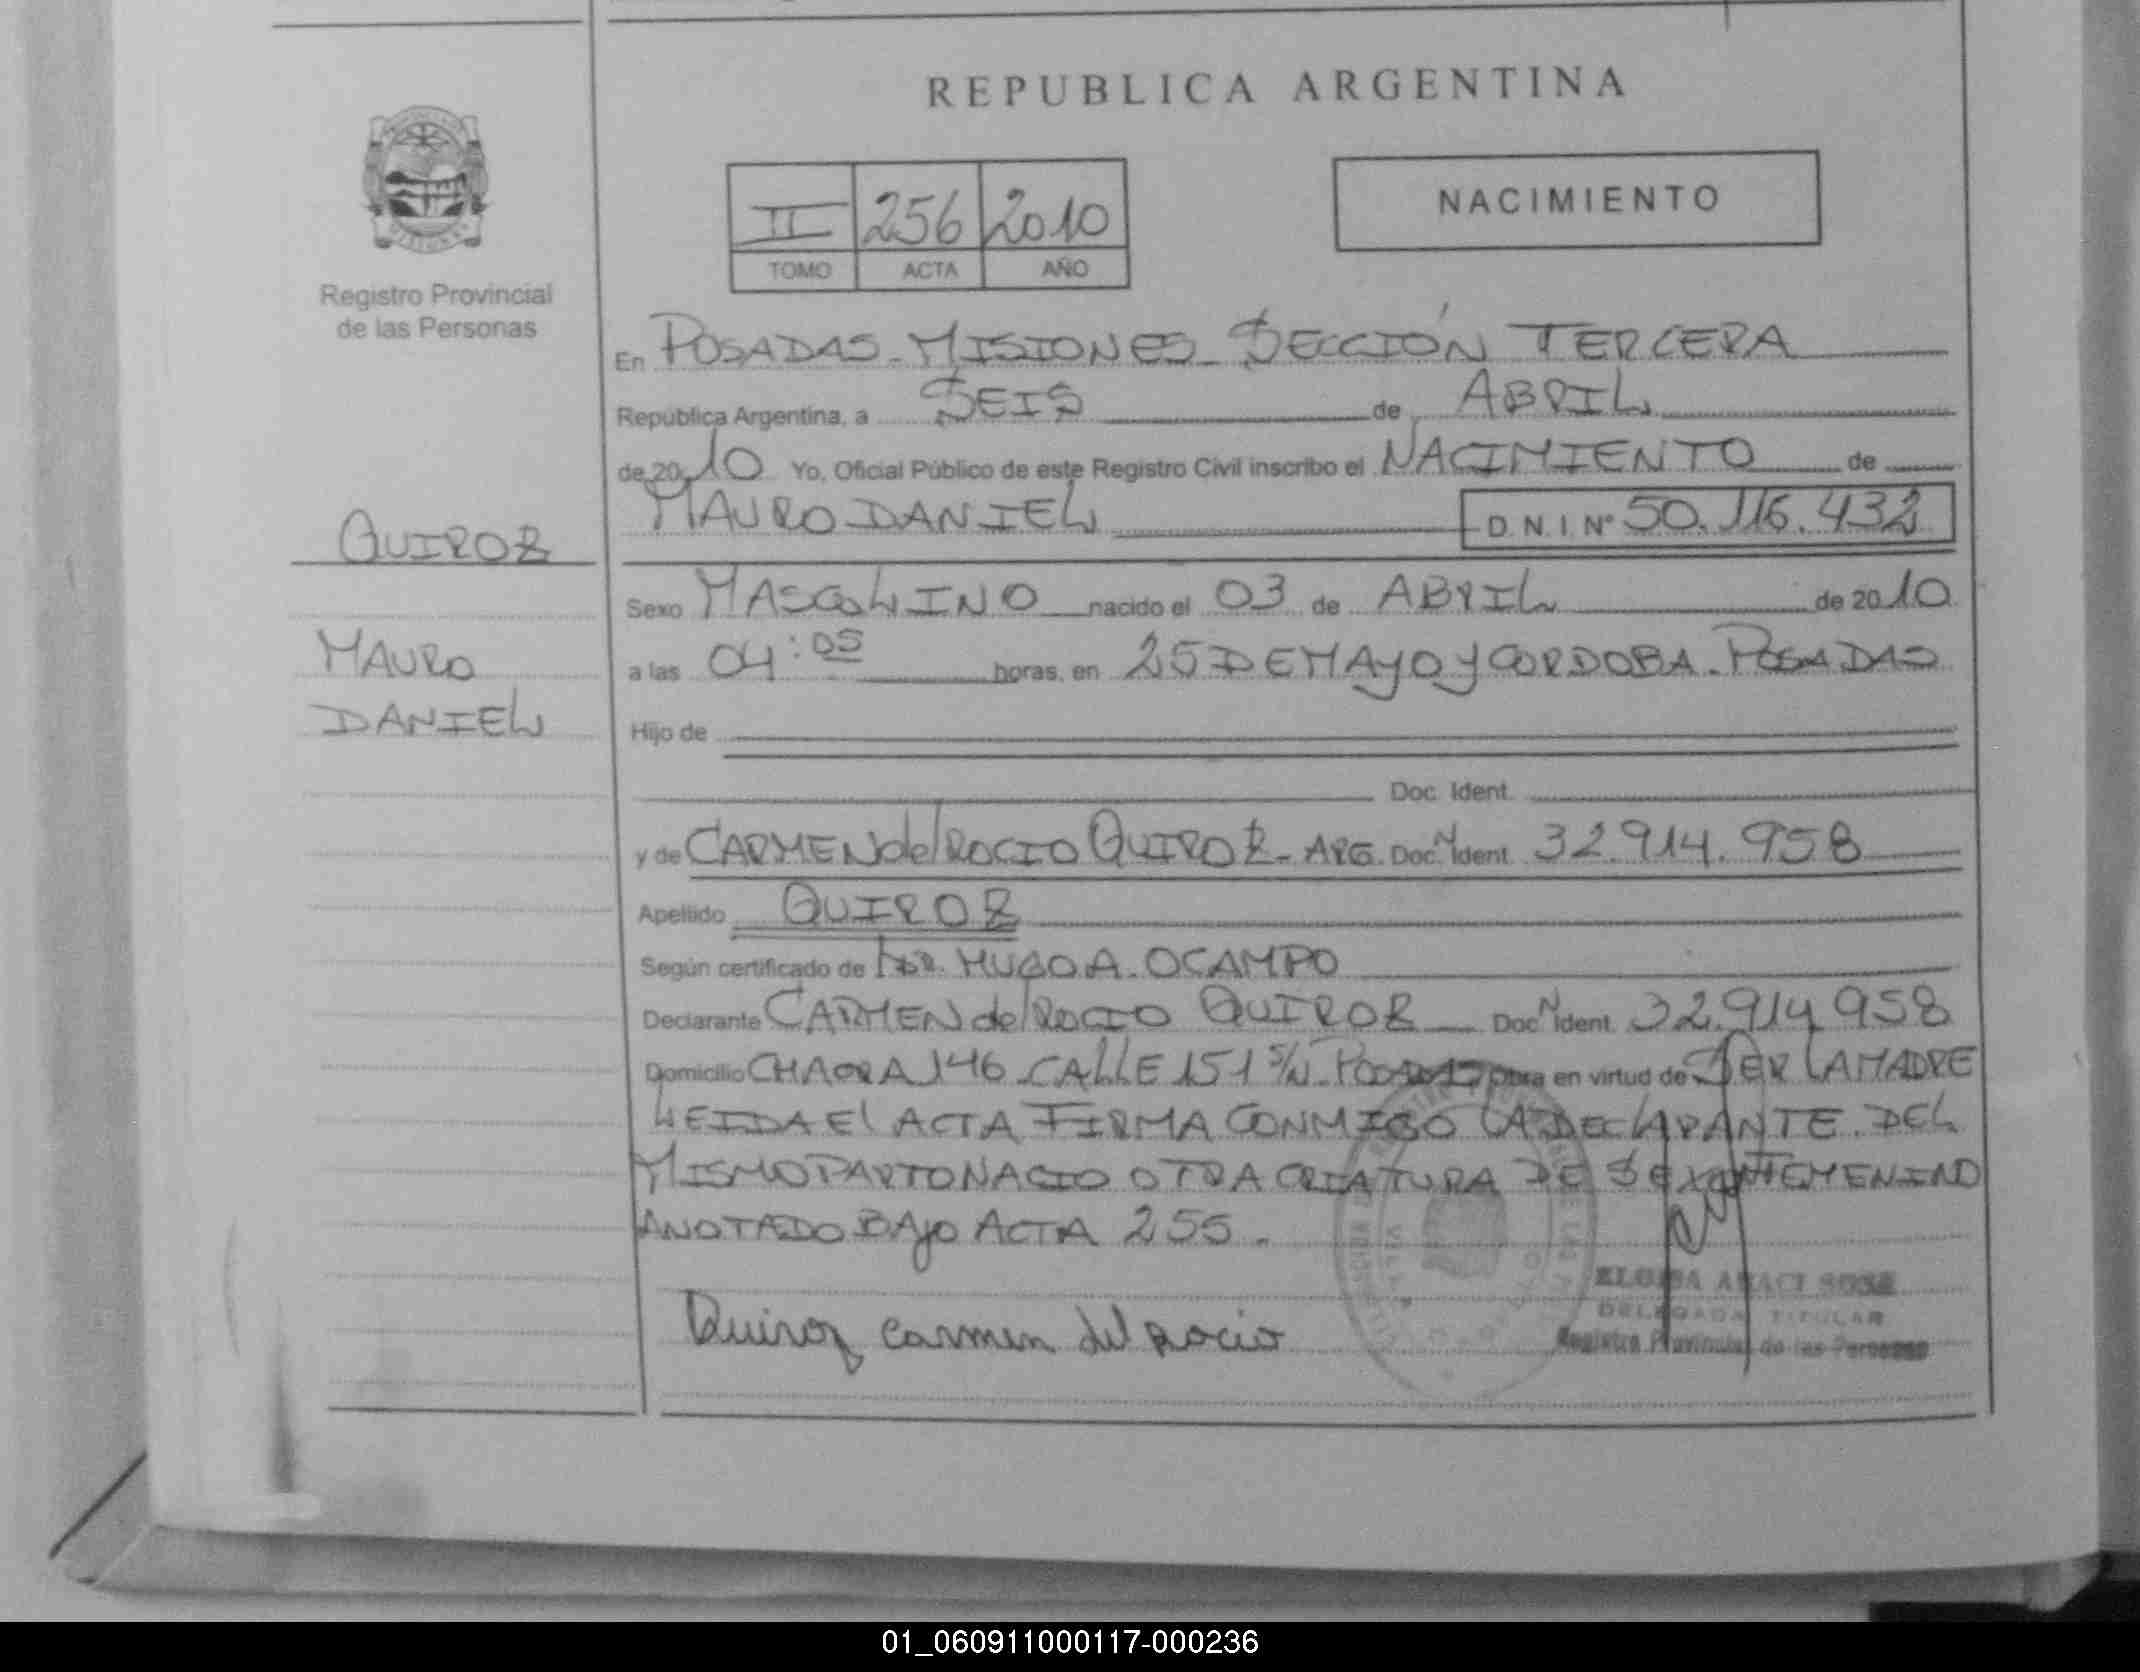 REPUBLICA ARGENTINA
NACIMIENTO
II 256 2010
TOMO ACTA AÑO
Registro Provincial
de las Personas
En POSADAS - MISIONES - SECCIÓN TERCERA
República Argentina, a SEIS de ABRIL
de 2010 Yo, Oficial Público de este Registro Civil inscribo el NACIMIENTO de
MAURO DANIEL D.N.I. Nº 50.116.432
QUIROZ
MAURO
DANIEL
Sexo MASCULINO nacido el 03 de ABRIL de 2010
a las 04:05 horas, en 25 DE MAYO Y CORDOBA - POSADAS
Hijo de
Doc. Ident.
y de CARMEN del ROCIO QUIROZ - ARG. Doc. N Ident. 32.914.958
Apellido QUIROZ
Según certificado de DR. HUGO A. OCAMPO
Declarante CARMEN del ROCIO QUIROZ Doc N Ident. 32.914.958
Domicilio CHACRA 146 CALLE 151 S/N - POSADAS Obra en virtud de SER LA MADRE
LEIDA El ACTA FIRMA CONMIGO LA DECLARANTE. DEL
MISMO PARTO NACIO OTRA CRIATURA DE SEXO FEMENINO
ANOTADO BAJO ACTA 255.
Quiroz Carmen del Rocio
DELEGADA TITULAR
Registro Provincial de las Personas
01_060911000117-000236